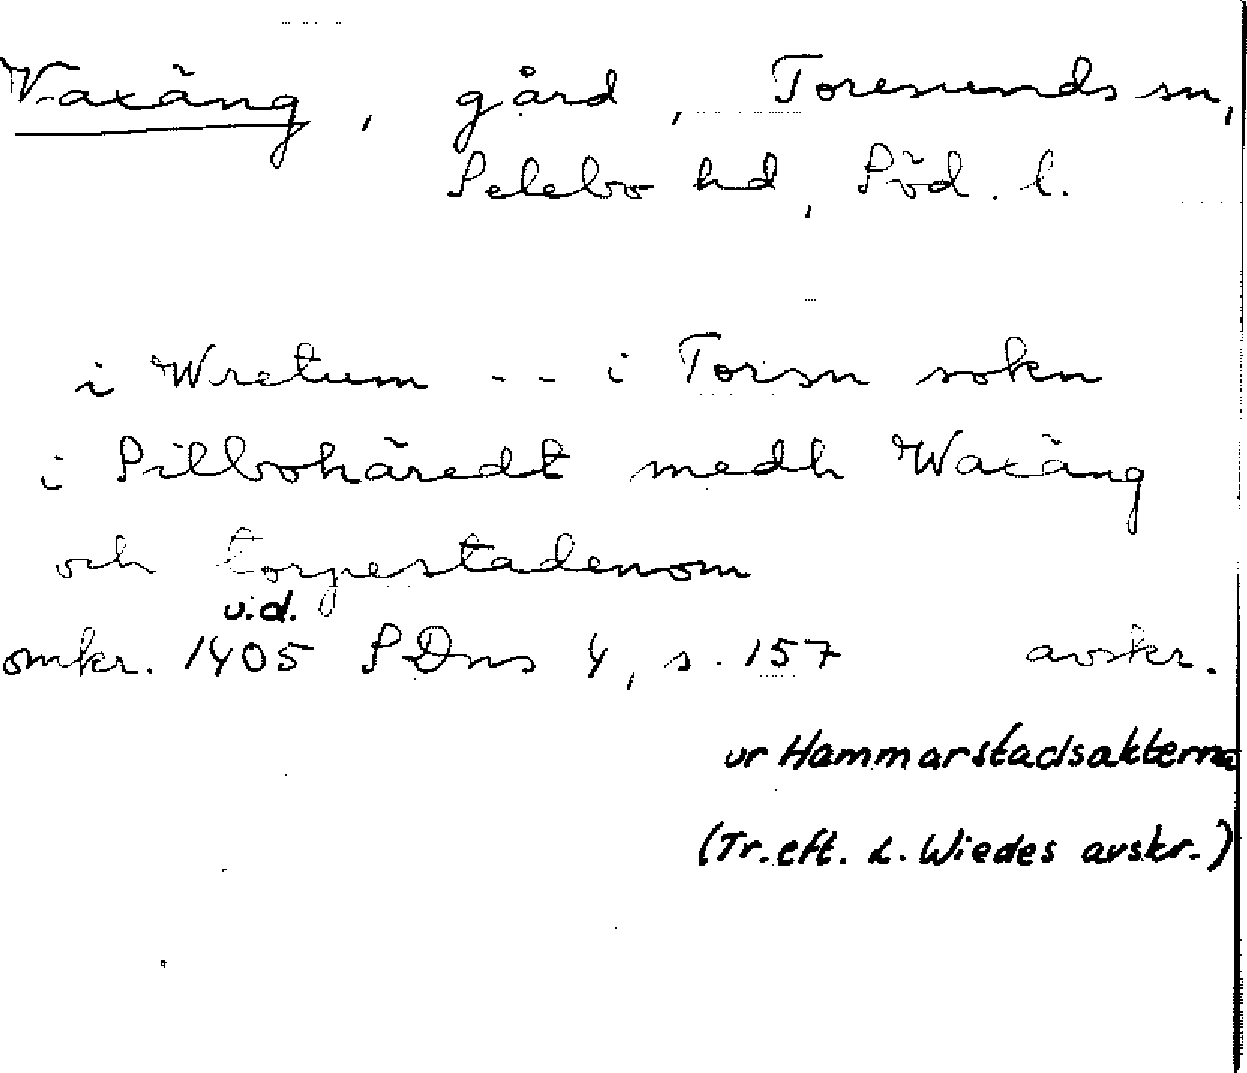 Vaxäng, gård, Toresunds sn,
Selebo hd, Söd. l.
i Wretum -- i Torsn sokn
i Silbohäredt medh Waxäng
och torpestadenom
u.d.
omkr. 1405 SDns 4, s. 157 avskr.
ur Hammarstadsakterna
(Tr. eft. L. Wiedes avskr.)